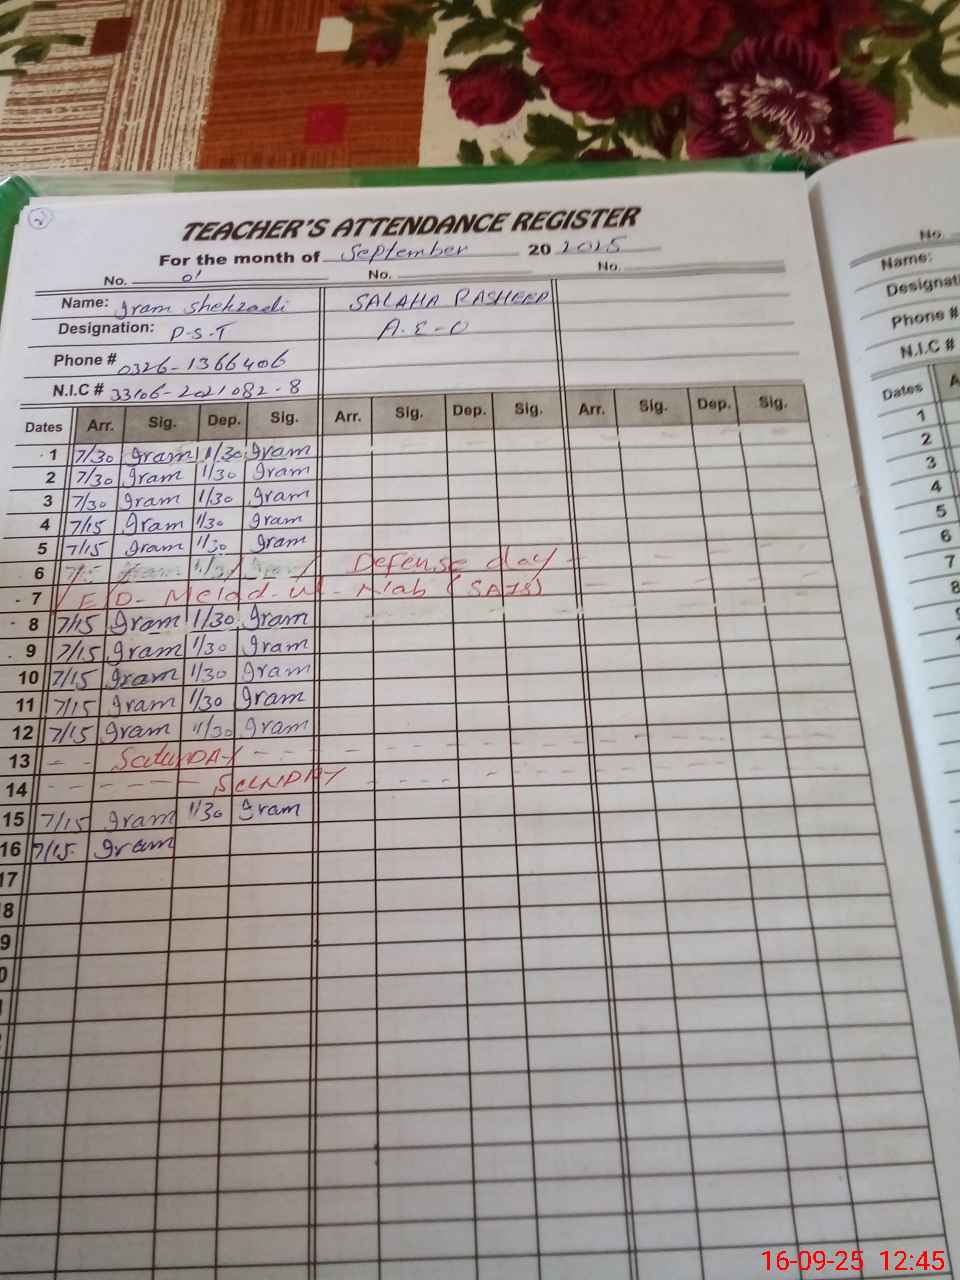 TEACHER'S ATTENDANCE REGISTER
For the month of September 20 2025
No. 01 No. No.
Name: Iram Shehzadi SALAHA RASHEED
Designation: P-S-T A-E-O
Phone # 0326-1366406
N.I.C # 33106-2021082-8
Dates Arr. Sig. Dep. Sig. Arr. Sig. Dep. Sig. Arr. Sig. Dep. Sig.
1 7/30 Iram 1/30 Iram
2 7/30 Iram 1/30 Iram
3 7/30 Iram 1/30 Iram
4 7/15 Iram 1/30 Iram
5 7/15 Iram 1/30 Iram
6 Defense day
7 EID- Melad-ul-Niab
8 7/15 Iram 1/30 Iram
9 7/15 Iram 1/30 Iram
10 7/15 Iram 1/30 Iram
11 7/15 Iram 1/30 Iram
12 7/15 Iram 1/30 Iram
13 SatuRDAY
14 SUNDAY
15 7/15 Iram 1/30 Iram
16 7/15 Iram
17
8
9
0
No.
Name:
Designati
Phone #
N.I.C #
Dates A
1
2
3
4
5
6
7
8
16-09-25 12:45